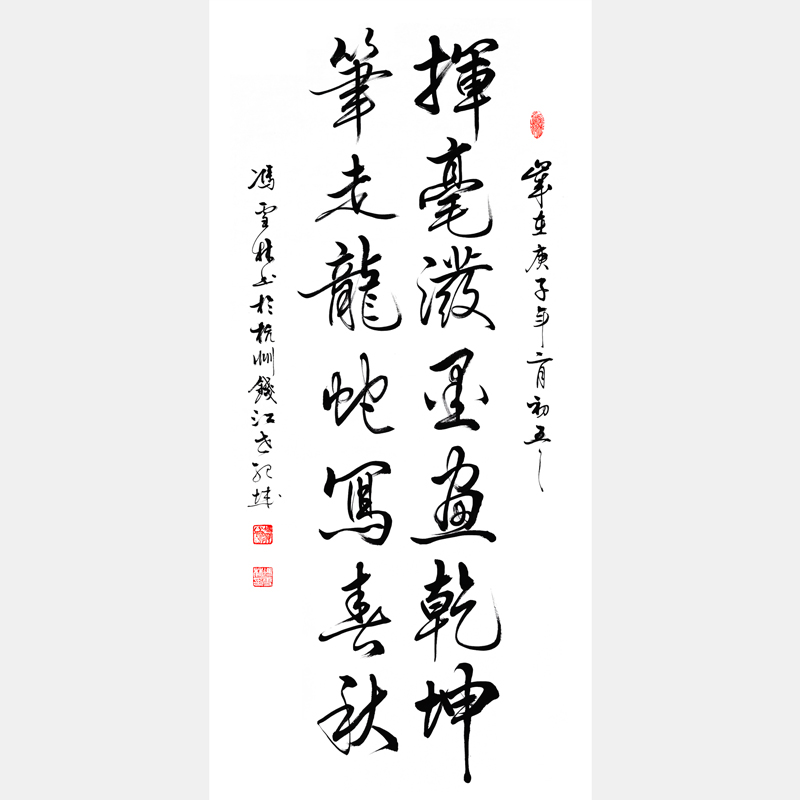 歲在庚子年二月初五
揮毫潑墨畫乾坤
筆走龍蛇寫春秋
馮雪林書於杭州錢江世紀城